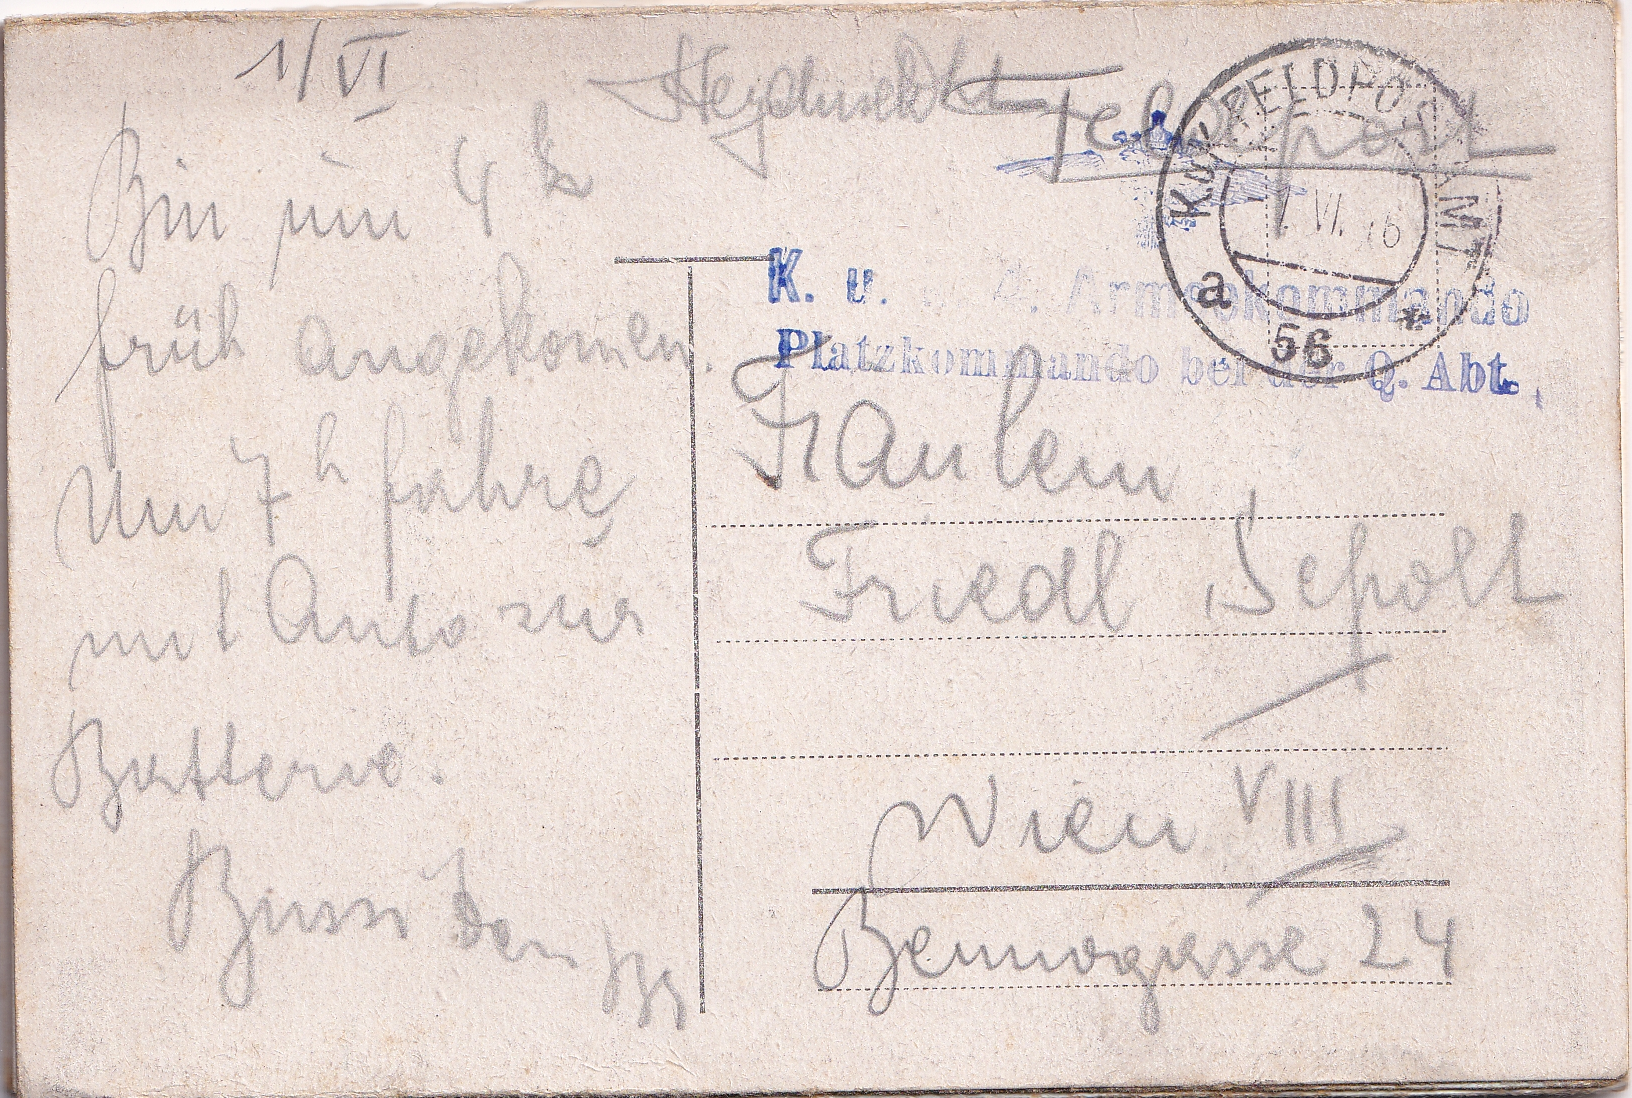 1/VI
Bin um 4 h
früh angekomen.
Um 7 h fahre
mit Auto zur
Batterie.
Bussi Dein
Feldpost
K.u.K. FELDPOSTAMT
VI. 16
a
56
*
K. u. 4. Armeekommando
Platzkommando bei der Q. Abt.
Fräulein
Friedl Sepolt
Wien VIII
Bennogasse 24